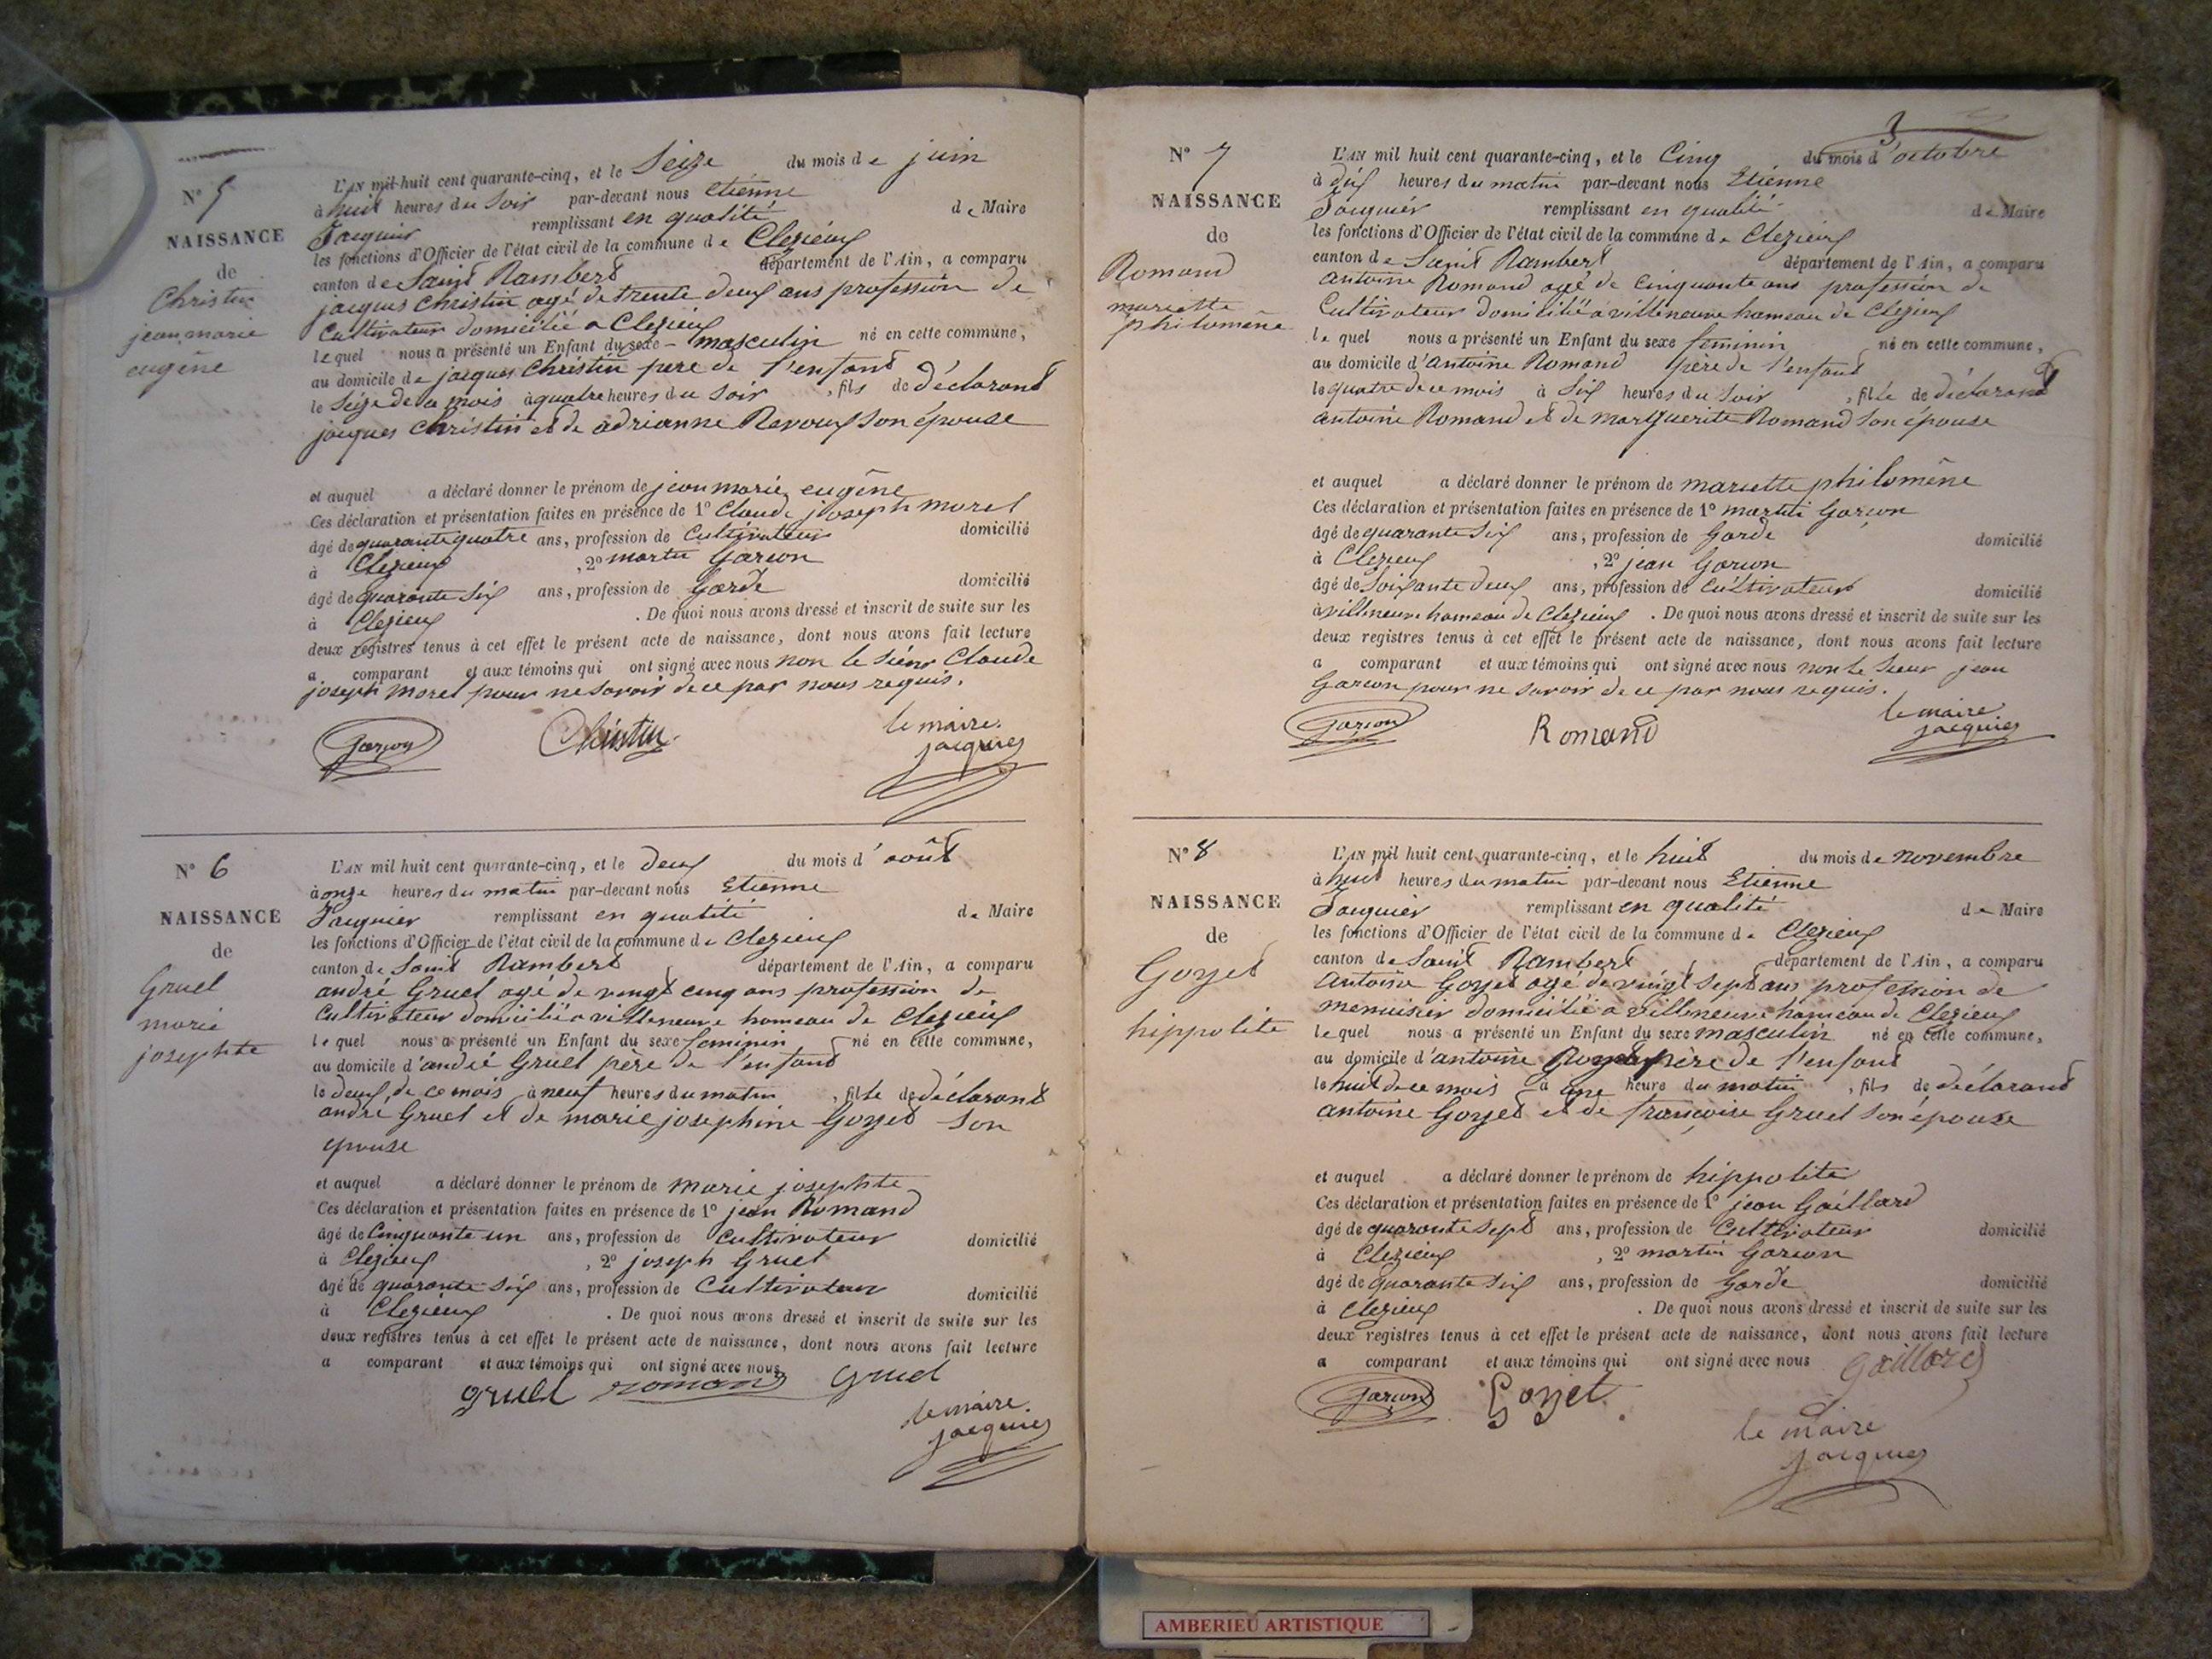 N° 5
NAISSANCE
de
Christin
jean marie
eugêne
L'AN mil huit cent quarante-cinq, et le Seize du mois de juin
à huit heures du Soir par-devant nous etiénne
Jacquier remplissant en qualité de Maire
les fonctions d'Officier de l'état civil de la commune de Clezieux
canton de Saint Rambert département de l'Ain, a comparu
jacques Christin agé de trente deux ans profession de
Cultivateur domicilié a Clezieux
lequel nous a présenté un Enfant du sexe masculin né en cette commune,
au domicile de jacques Christin pere de l'enfant
le Seize de ce mois à quatre heures du Soir, fils de déclarant
jacques Christin et de adrianne Ravoux son épouse
et auquel a déclaré donner le prénom de jean marie eugêne
Ces déclaration et présentation faites en présence de 1° Claude joseph morel
âgé de quarante quatre ans, profession de Cultivateur domicilié
à Clezieux, 2° martin Garcon
âgé de quarante Six ans, profession de Garde domicilié
à Clezieux. De quoi nous avons dressé et inscrit de suite sur les
deux registres tenus à cet effet le présent acte de naissance, dont nous avons fait lecture
a comparant et aux témoins qui ont signé avec nous non le Siéur Claude
joseph morel pour ne savoir de ce par nous requis.
Garcon Christin le maire
jacquier
N° 6
NAISSANCE
de
Gruel
marie
josephte
L'AN mil huit cent quarante-cinq, et le deux du mois d'août
à onze heures du matin par-devant nous Etienne
Jacquier remplissant en qualité de Maire
les fonctions d'Officier de l'état civil de la commune de Clezieux
canton de Saint Rambert département de l'Ain, a comparu
andré Gruel agé de vingt cinq ans profession de
Cultivateur domicilié a villeneuve hameau de Clezieux
lequel nous a présenté un Enfant du sexe feminin né en cette commune,
au domicile d'andré Gruel père de l'enfant
le deux de ce mois à neuf heures du matin, fille de déclarant
andré Gruel et de marie josephine Goyet son
epouse
et auquel a déclaré donner le prénom de marie josephte
Ces déclaration et présentation faites en présence de 1° jean Romand
âgé de Cinquante un ans, profession de Cultivateur domicilié
à Clezieux, 2° joseph Gruel
âgé de quarante Six ans, profession de Cultivateur domicilié
à Clezieux. De quoi nous avons dressé et inscrit de suite sur les
deux registres tenus à cet effet le présent acte de naissance, dont nous avons fait lecture
a comparant et aux témoins qui ont signé avec nous
gruel romand Gruel
le maire
jacquier
3
N° 7
NAISSANCE
de
Romand
mariette
philomêne
L'AN mil huit cent quarante-cinq, et le Cinq du mois d'octobre
à dix heures du matin par-devant nous Etienne
Jacquier remplissant en qualité de Maire
les fonctions d'Officier de l'état civil de la commune de Clezieux
canton de Saint Rambert département de l'Ain, a comparu
antoine Romand agé de Cinquante ans profession de
Cultivateur domicilié a villeneuve hameau de Clezieux
lequel nous a présenté un Enfant du sexe feminin né en cette commune,
au domicile d'antoine Romand père de l'enfant
le quatre de ce mois à Six heures du Soir, fille de déclarant
antoine Romand et de marguerite Romand son épouse
et auquel a déclaré donner le prénom de mariette philomêne
Ces déclaration et présentation faites en présence de 1° martin Garçon
âgé de quarante Six ans, profession de Garde domicilié
à Clezieux, 2° jean Garcon
âgé de Soixante deux ans, profession de Cultivateur domicilié
à villeneuve hameau de Clezieux. De quoi nous avons dressé et inscrit de suite sur les
deux registres tenus à cet effet le présent acte de naissance, dont nous avons fait lecture
a comparant et aux témoins qui ont signé avec nous non le Sieur jean
Garcon pour ne savoir de ce par nous requis.
Garçon Romand le maire
jacquier
N° 8
NAISSANCE
de
Goyet
hippolite
L'AN mil huit cent quarante-cinq, et le huit du mois de novembre
à huit heures du matin par-devant nous Etienne
Jacquier remplissant en qualité de Maire
les fonctions d'Officier de l'état civil de la commune de Clezieux
canton de Saint Rambert département de l'Ain, a comparu
Antoine Goyet agé de vingt Sept ans profession de
menuisier domicilié a villeneuve hameau de Clezieux
lequel nous a présenté un Enfant du sexe masculin né en cette commune,
au domicile d'antoine père de l'enfant
le huit de ce mois à une heure du matin, fils de déclarant
antoine Goyet et de françoise Gruel son épouse
et auquel a déclaré donner le prénom de hippolite
Ces déclaration et présentation faites en présence de 1° jean Gaillard
âgé de quarante sept ans, profession de Cultivateur domicilié
à Clezieux, 2° martin Garcon
âgé de quarante Six ans, profession de Garde domicilié
à Clezieux. De quoi nous avons dressé et inscrit de suite sur les
deux registres tenus à cet effet le présent acte de naissance, dont nous avons fait lecture
a comparant et aux témoins qui ont signé avec nous Gaillard
Garcon Goyet
le maire
jacquier
AMBERIEU ARTISTIQUE